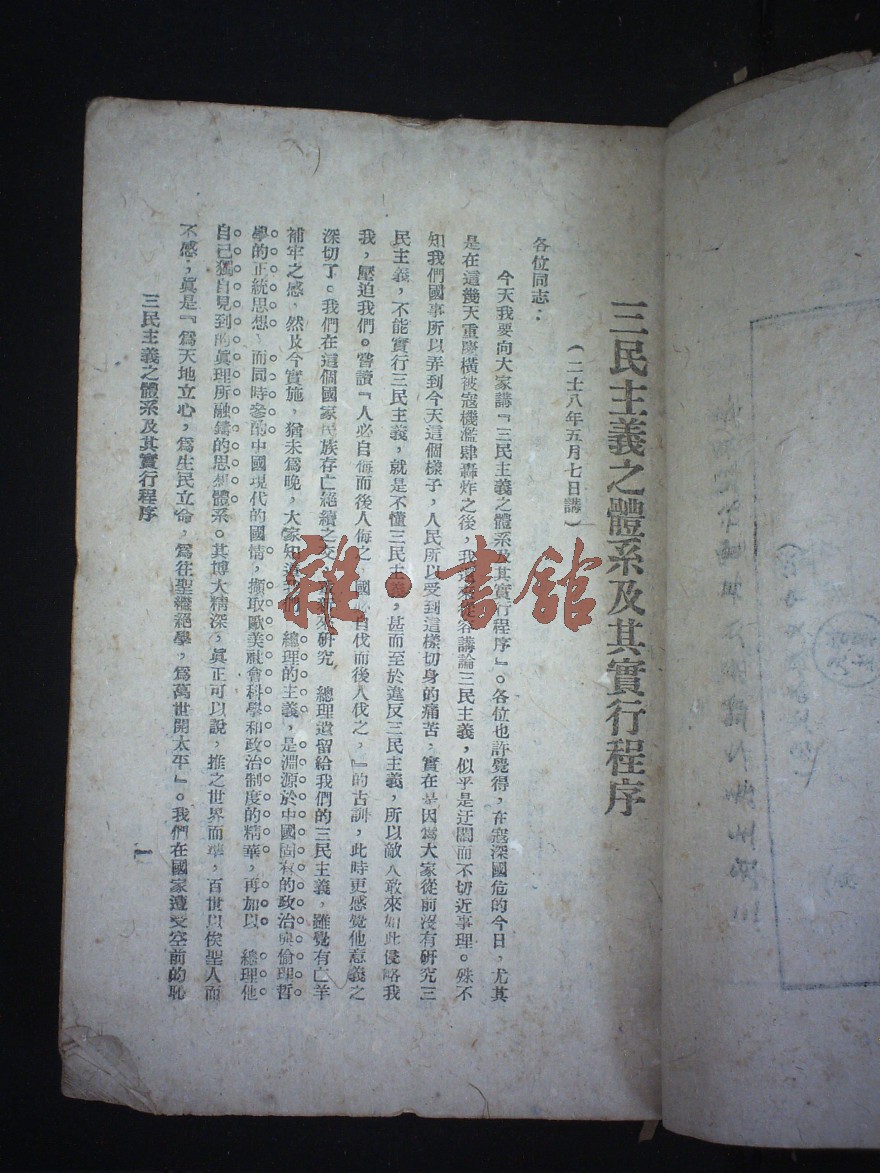 三民主義之體系及其實行程序
(二十八年五月七日講)
各位同志：
今天我要向大家講『三民主義之體系及其實行程序』。各位也許覺得，在寇深國危的今日，尤其
是在這幾天重慶橫被寇機濫肆轟炸之後，我還來從容講論三民主義，似乎是迂闊而不切近事理。殊不
知我們國事所以弄到今天這個樣子，人民所以受到這樣切身的痛苦，實在是因爲大家從前沒有研究三
民主義，不能實行三民主義，就是不懂三民主義，甚而至於違反三民主義，所以敵人敢來如此侵略我
我，壓迫我們。嘗讀『人必自侮而後人侮之，國必自伐而後人伐之，』的古訓，此時更感覺他意義之
深切了。我們在這個國家民族存亡絕續之交，來研究 總理遺留給我們的三民主義，雖覺有亡羊
補牢之感，然及今實施，猶未爲晚，大家知道我們 總理的主義，是淵源於中國固有的政治與倫理哲
學的正統思想，而同時參酌中國現代的國情，擷取歐美社會科學和政治制度的精華，再加以 總理他
自己獨自見到的眞理所融鑄的思想體系。其博大精深，眞正可以說，推之世界而準，百世以俟聖人而
不惑；眞是『爲天地立心，爲生民立命，爲往聖繼絕學，爲萬世開太平』。我們在國家遭受空前的恥
三民主義之體系及其實行程序
一
雜·書館